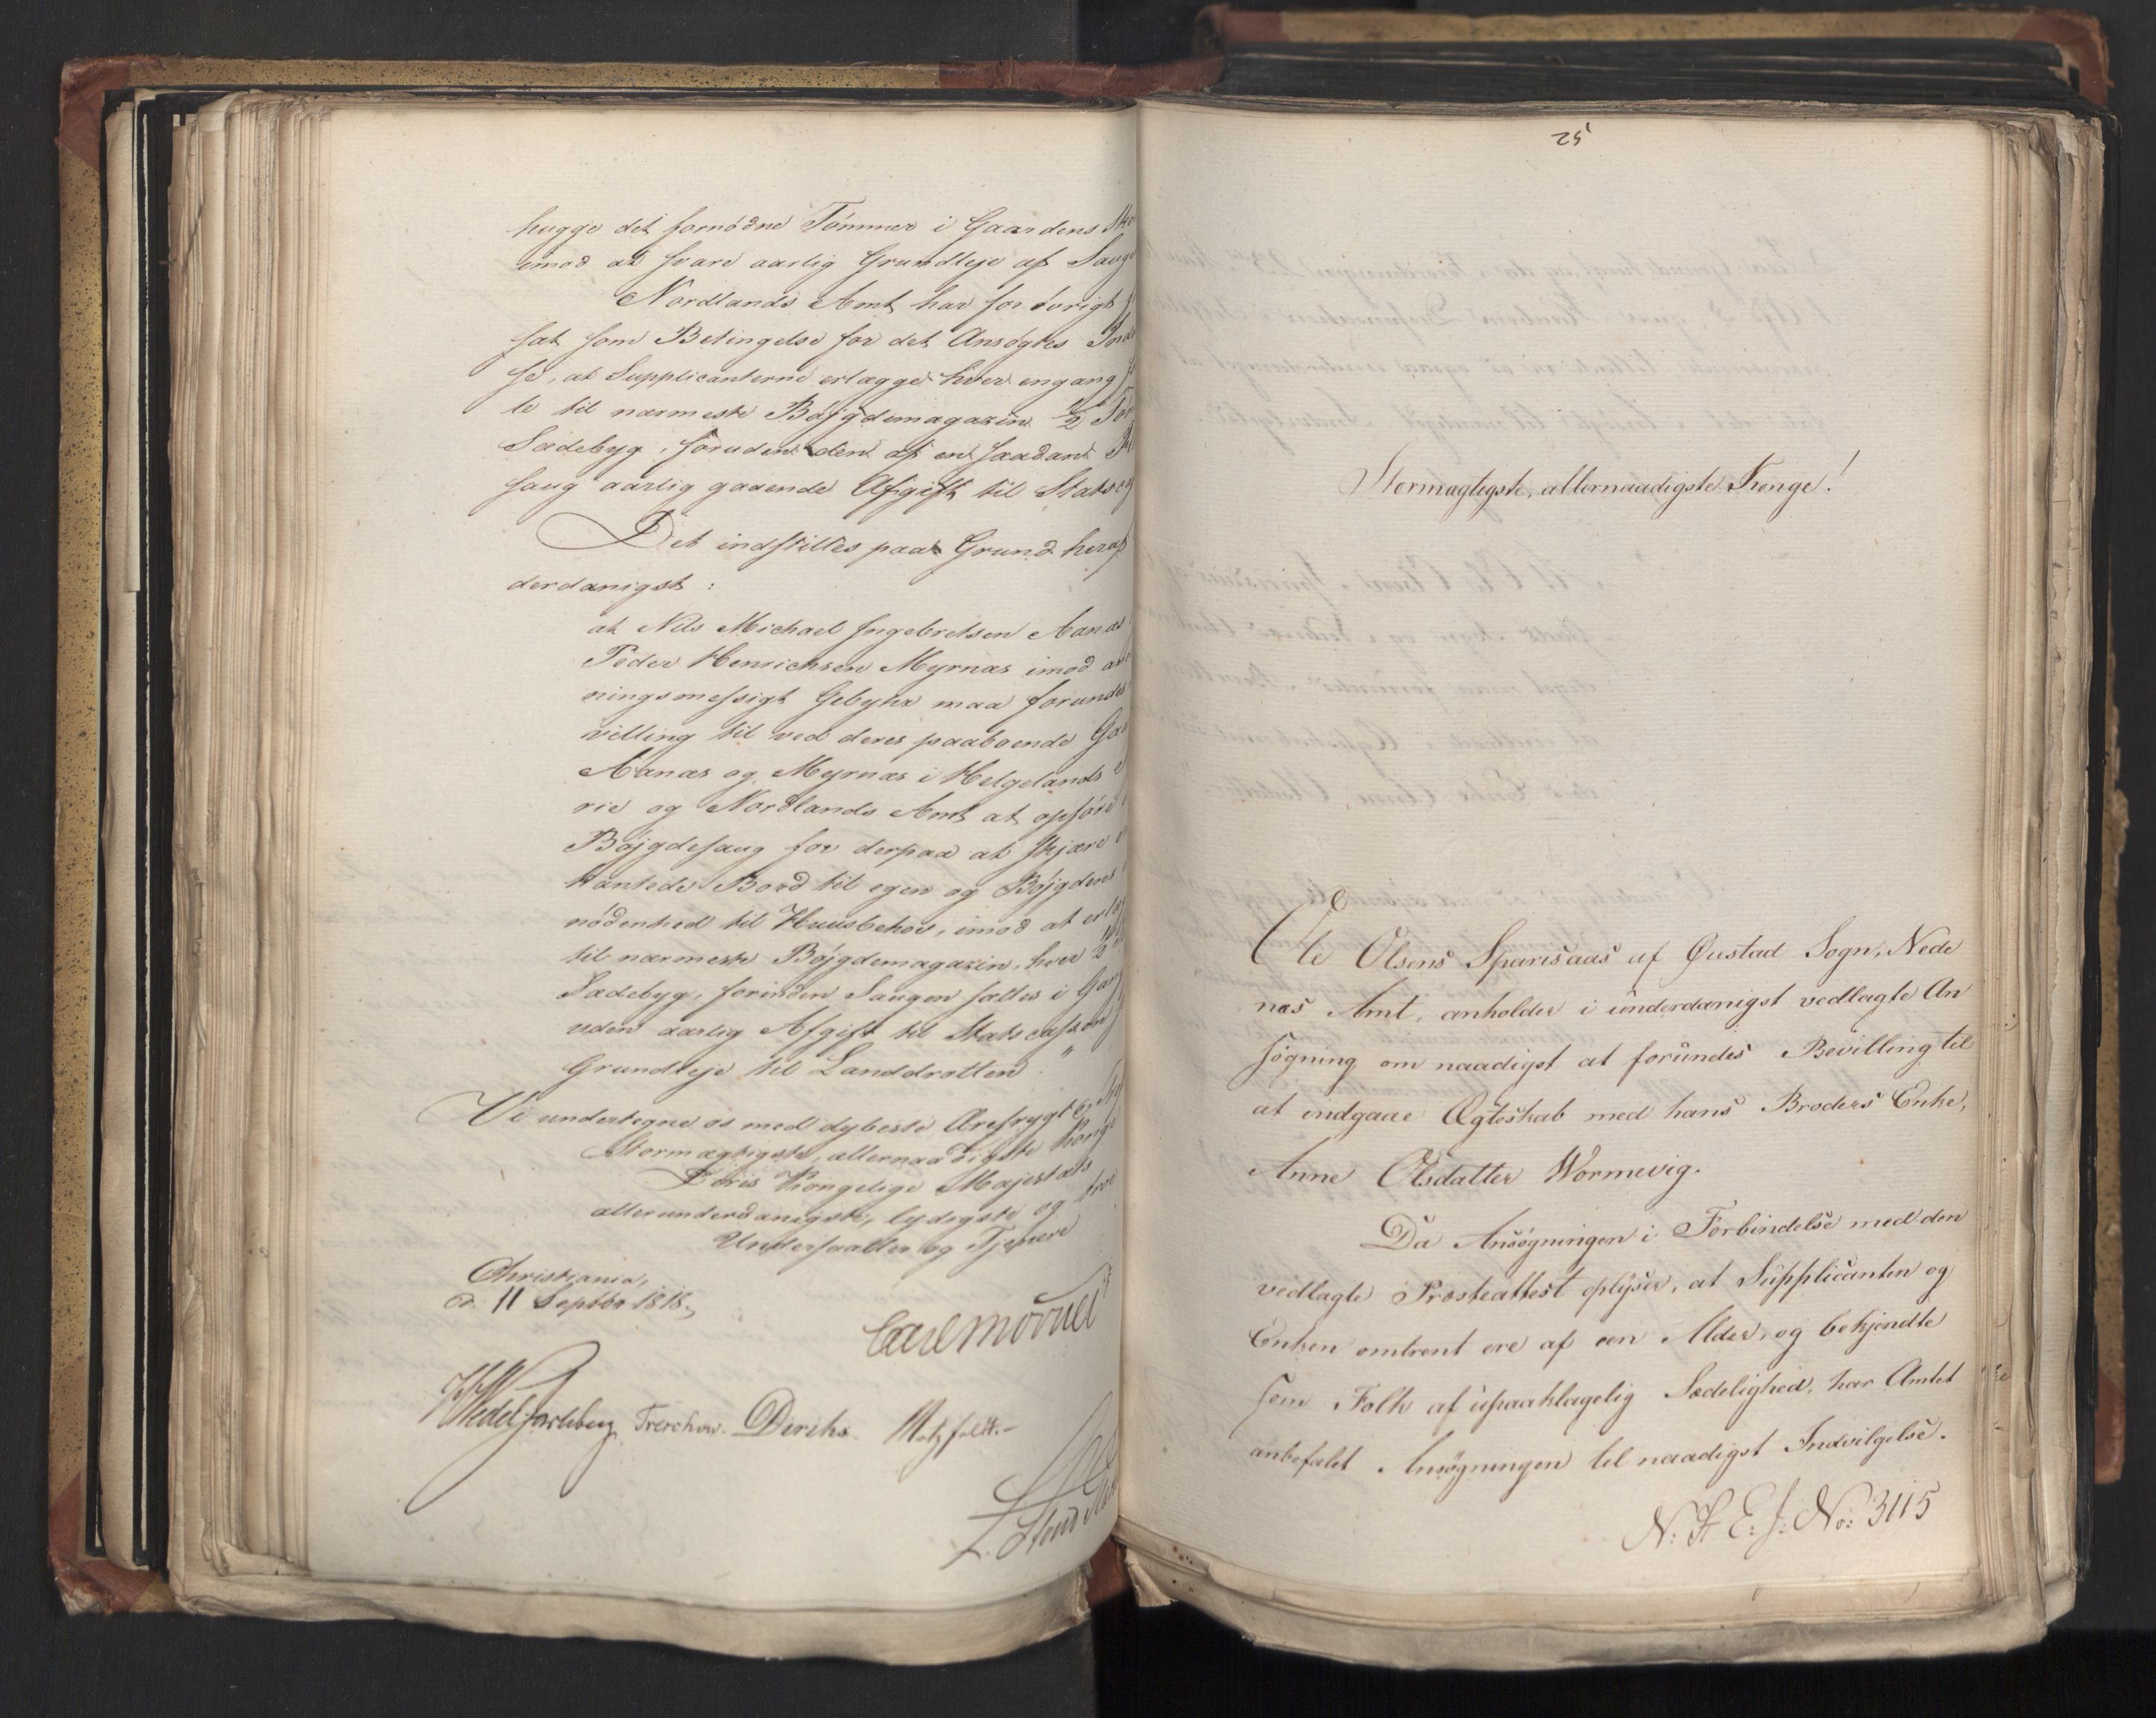 hugge det fornödne Tömmer i Gaardens Sko
imod at svare aarlig Grundleje af Sauge
Nordlands Amt har for övrigt
sat som Betingelse for det Ansögtes Inde
se, at Supplicanterne erlægge hver engang
le til nærmeste Böjgdemagazin ½ Tön
Sædebyg, foruden den af en saadan
saug aarlig gaaende Afgift til Statsca
Det indstilles paa Grund heraf
derdanigst:
at Nils Michael Ingebretsen Aanæs
Peder Henrichsen Myrnæs imod an
ningsmessigt Gebyhr maa forundes
villing til ved deres paaboende Gaa
Aanæs og Myrnæs i Helgelands
rie og Nordlands Amt at opföre
Böjgdesaug for derpaa at skjære
kantede Bord til egen og Böjgdens
nödenhed til Huusbehov, imod at erlæg
til nærmeste Böjgdemagazin, hver ½
Sædebyg, forinden Saugen sættes i Gan
uden aarlig Afgift til Statscassen
Grundleje til Landdrotten."
Vi undertegne os med dybeste Ærefrygt
Stormægtigste, allernaadigste Konge
Deres Kongelige Majestæts
allerunderdanigste, lydigste og troe
Undersaatter og Tjenere
Christiania,
d. 11 Septbr 1818.
Carl Mörner
HWedel Jarlsberg Treschow. Diriks Motzfeldt.-
25
Stormægtigste, allernaadigste Konge!
Ole Olsens Sparsaas af Øustad Sogn, Nede
næs Amt, anholder i underdanigst vedlagte An
søgning om naadigst at forundes Bevilling til
at indgaae Ægteskab med hans Broders Enke,
Anne Olsdatter Wormevig.
Da Ansøgningen i Forbindelse med den
vedlagte Præsteattest oplyser, at Supplicanten og
Enken omtrent ere af een Alder, og bekjendte
som Folk af upaaklagelig Sædelighed, har Amtet
anbefalet Ansøgningen til naadigst Indvilgelse.
N: St. E: J: No: 3115